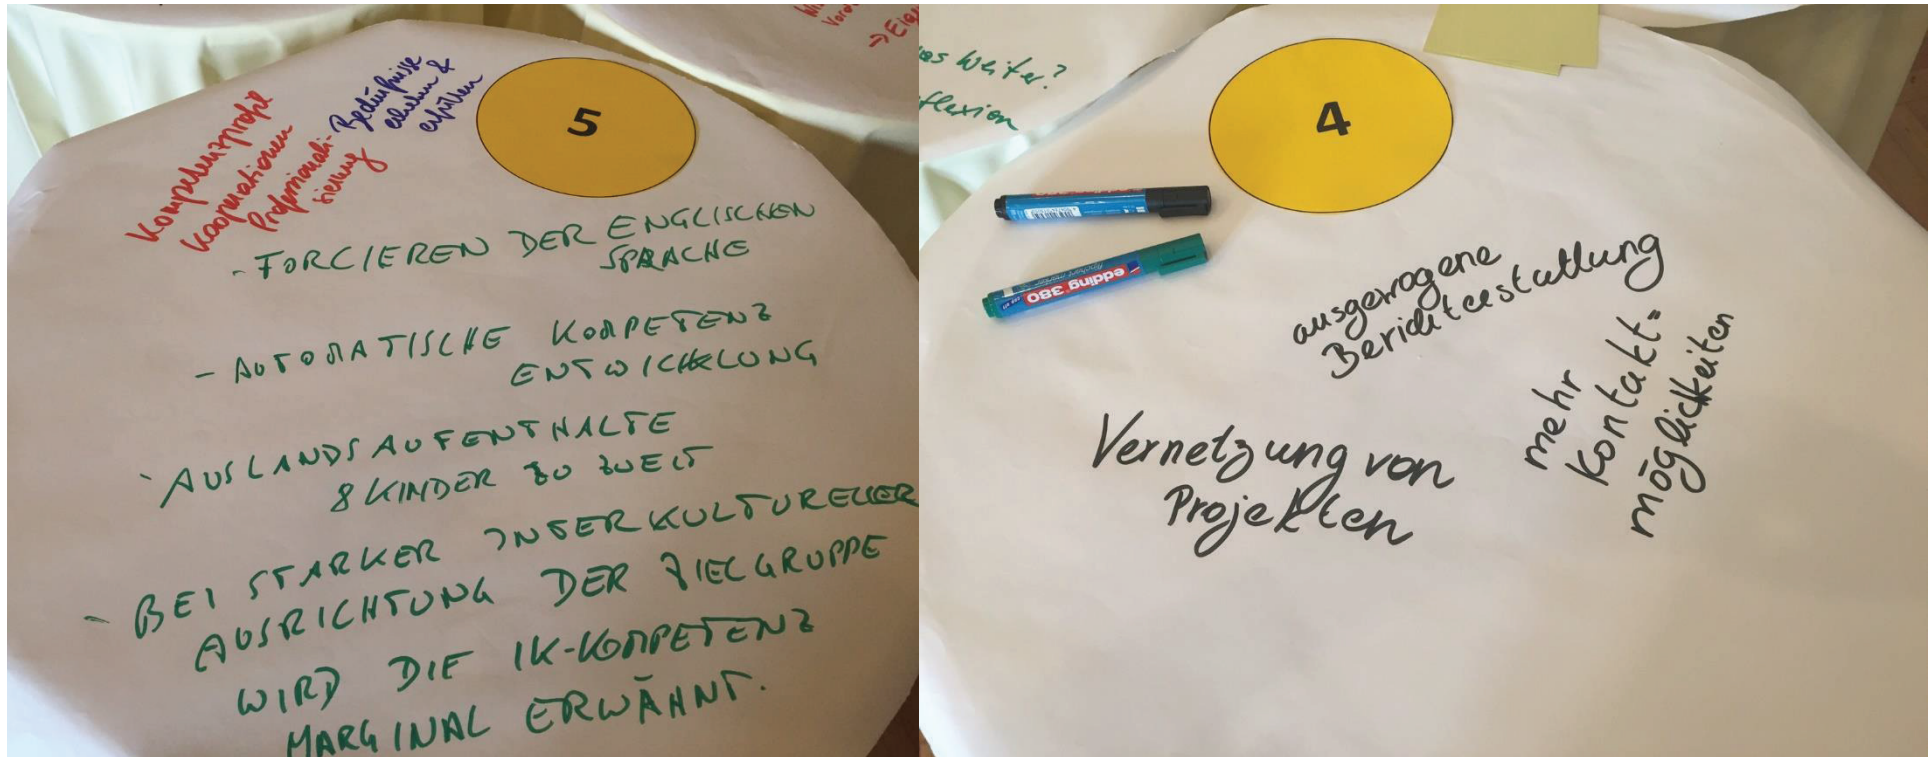 Kompetenzprofil
Kooperationen
Professionali-
sierung
Bedürfnisse
erheben &
erfüllen
5
- FORCIEREN DER ENGLISCHEN
SPRACHE
- AUTOMATISCHE KOMPETENZ
ENTWICKLUNG
- AUSLANDSAUFENTHALTE
8 KINDER ZU ZWEIT
- BEI STARKER INTERKULTURELLER
AUSRICHTUNG DER ZIELGRUPPE
WIRD DIE IK-KOMPETENZ
MARGINAL ERWÄHNT.
weiter?
4
edding 380
ausgewogene
Berichterstattung
mehr
Kontakt=
möglickeiten
Vernetzung von
Projekten